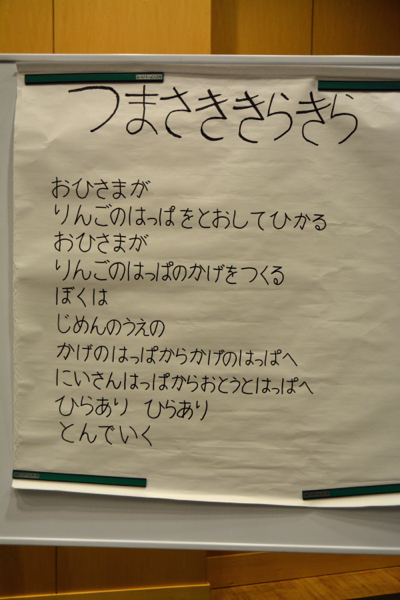 つまさききらきら
おひさまが
りんごのはっぱをとおしてひかる
おひさまが
りんごのはっぱのかげをつくる
ぼくは
じめんのうえの
かげのはっぱからかげのはっぱへ
にいさんはっぱからおとうとはっぱへ
ひらあり ひらあり
とんでいく